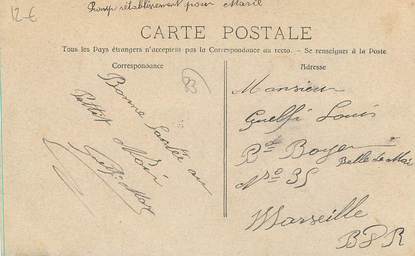 12-€
Promp rétablissement pour Marie
CARTE POSTALE
Tous les Pays étrangers n'acceptent pas la Correspondance au recto. — Se renseigner à la Poste
Correspondance
Bonne Santée au
Petit Noir
Adresse
Monsieur
Guelfi Louis
Bd Boyer
Belle de Mai
Nro 35
Marseille
BDR